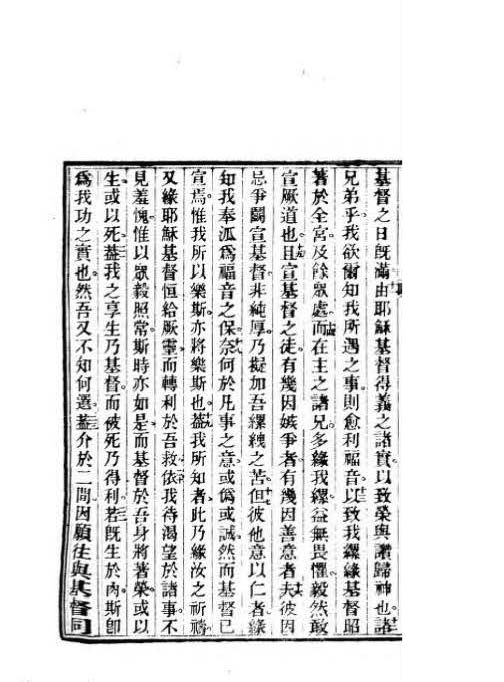 基督之日既滿由耶穌基督得義之諸實以致榮與讚歸神也諸
兄弟乎我欲爾知我所遇之事則愈利福音以致我縲緣基督昭
著於全宮及餘眾處而在主之諸兄多緣我縲益無畏懼毅然敢
宣厥道也且宣基督之徒有幾因嫉爭者有幾因善意者夫彼因
忌爭鬪宣基督非純厚乃擬加吾縲絏之苦但彼他意以仁者緣
知我奉派為福音之保奈何於凡事之意或偽或誠然而基督已
宣焉惟我所以樂斯亦將樂斯也蓋我所知者此乃緣汝之祈禱
又緣耶穌基督恒給厥靈而轉利於吾救依我待渴望於諸事不
見羞愧惟以眾毅照常斯時亦如是而基督於吾身將著榮或以
生或以死蓋我之享生乃基督而彼死乃得利若既生於肉斯即
為我功之實也然吾又不知何選蓋介於二間因願往與基督同